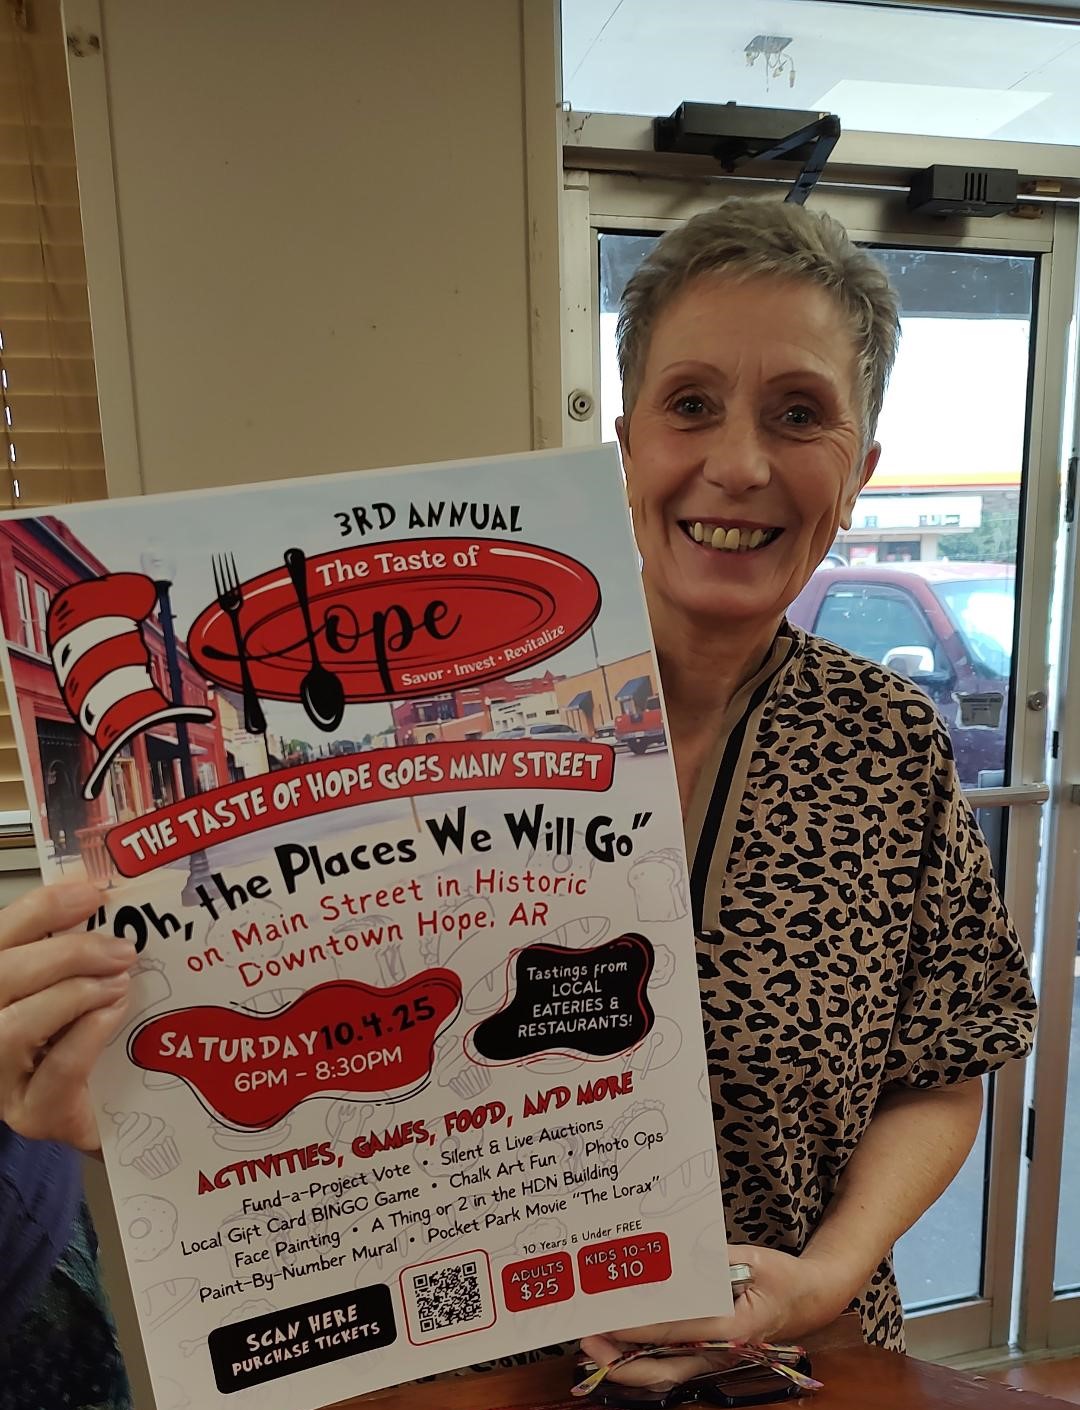 3RD ANNUAL
The Taste of
Hope
Savor • Invest • Revitalize
THE TASTE OF HOPE GOES MAIN STREET
"Oh, the Places We Will Go"
on Main Street in Historic
Downtown Hope, AR
SATURDAY 10.4.25
6PM – 8:30PM
Tastings from
LOCAL
EATERIES &
RESTAURANTS!
ACTIVITIES, GAMES, FOOD, AND MORE
Fund-a-Project Vote • Silent & Live Auctions
Local Gift Card BINGO Game • Chalk Art Fun • Photo Ops
Face Painting • A Thing or 2 in the HDN Building
Paint-By-Number Mural • Pocket Park Movie "The Lorax"
SCAN HERE
PURCHASE TICKETS
10 Years & Under FREE
ADULTS
$25
KIDS 10-15
$10